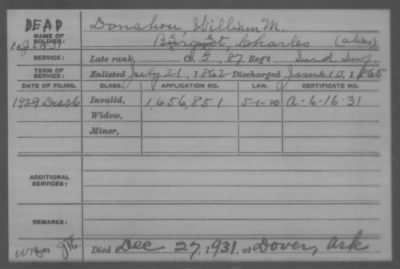 DEAD
Donahon, William M.
NAME OF SOLDIER:
Charles (alias)
SERVICE: Late rank, Co. I, 87 Reg't Ind Inf.
TERM OF SERVICE: Enlisted July 21, 1862 Discharged June 10, 1865
DATE OF FILING. CLASS. APPLICATION NO. LAW. CERTIFICATE NO.
Invalid, 1,656,851 5-1-20 A-6-16-31
Widow,
Minor,
ADDITIONAL SERVICES:
REMARKS:
Died Dec 27, 1931, at Dover, Ark